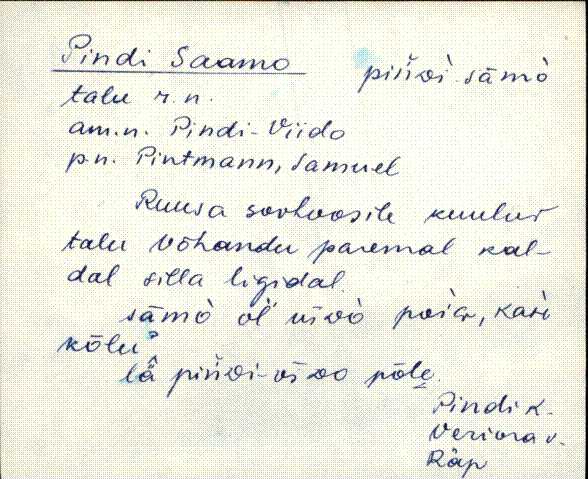 Pindi Saamo pińdì sāmò
talu r.n.
am.n. Pindi-Viido
p.n. Pintmann, Samuel
Ruusa sovhoosile kuuluv
talu Võhandu paremal kal-
dal silla ligidal.
sāmò ol'
kõlu?
lä pōlę
Pindi k.
Veriora v.
Räp